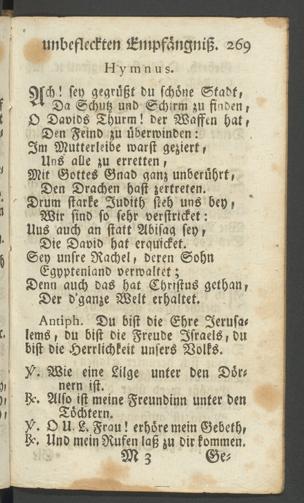 unbefleckten Empfängniß. 269
Hymnus.
Ach! sey gegrüßt du schöne Stadt,
Da Schutz und Schirm zu finden,
O Davids Thurm! der Waffen hat,
Den Feind zu überwinden:
Im Mutterleibe warst geziert,
Uns alle zu erretten,
Mit Gottes Gnad ganz unberührt,
Den Drachen hast zertreten.
Drum starke Judith steh uns bey,
Wir sind so sehr verstricket:
Uns auch an statt Abisag sey,
Die David hat erquicket.
Sey unsre Rachel, deren Sohn
Egyptenland verwaltet;
Denn auch das hat Christus gethan,
Der d'ganze Welt erhaltet.
Antiph. Du bist die Ehre Jerusa-
lems, du bist die Freude Israels, du
bist die Herrlichkeit unsers Volks.
℣. Wie eine Lilge unter den Dör-
nern ist.
℟. Also ist meine Freundinn unter den
Töchtern.
℣. O U. L. Frau! erhöre mein Gebeth,
℟. Und mein Rufen laß zu dir kommen.
M 3 Ge-